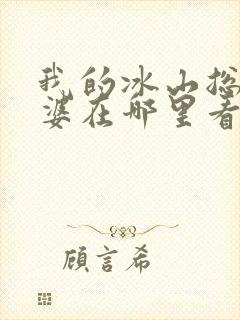 我的冰山总
婆在哪里看
顾言希